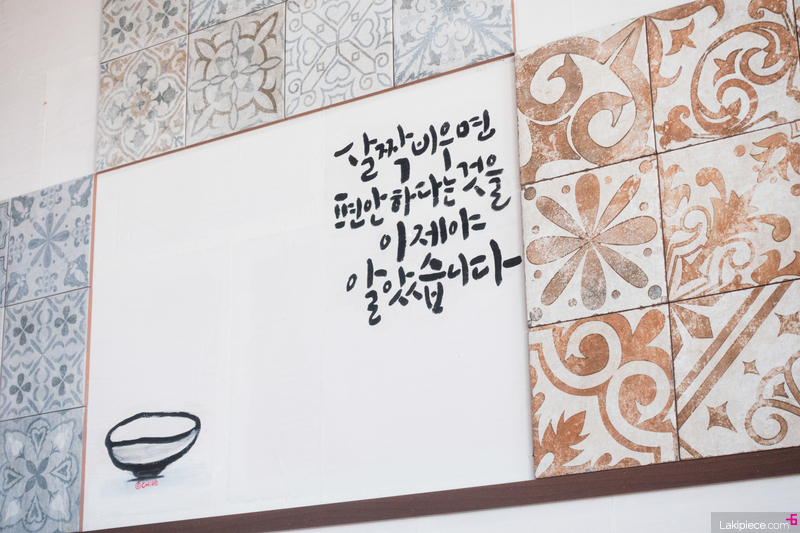 살짝 비우면
편안하다는 것을
이제야
알았습니다
Lakipiece.com